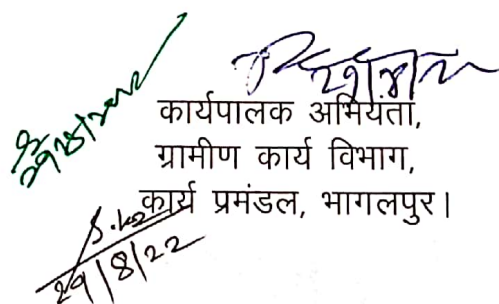 29/8/2022
29/8/22
कार्यपालक अभियंता,
ग्रामीण कार्य विभाग,
कार्य प्रमंडल, भागलपुर।
29/8/22